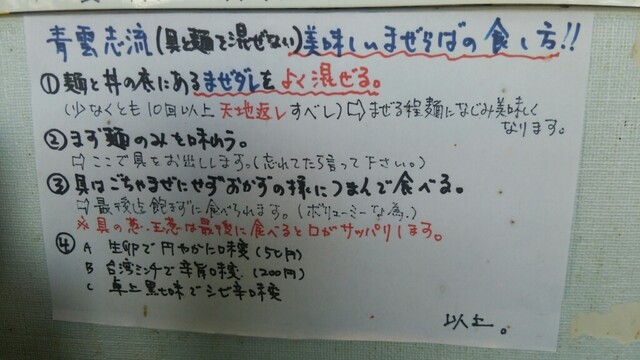 青雲志流(具と麺を混ぜない)美味しいまぜそばの食し方!!
①麺と丼の底にあるまぜダレをよく混ぜる。
(少なくとも10回以上天地返しすべし)⇨まぜる程麺になじみ美味しく
なります。
②まず麺のみを味わう。
⇨ここで具をお出しします。(忘れてたら言って下さい。)
③具はごちゃまぜにせずおかずの様につまんで食べる。
⇨最後迄飽きずに食べられます。(ボリューミーな為。)
※具の葱・玉葱は最後に食べると口がサッパリします。
④ A 生卵で円やかに味変(50円)
B 台湾ミンチで辛旨味変(200円)
C 卓上黒七味でシビ辛味変
以上。